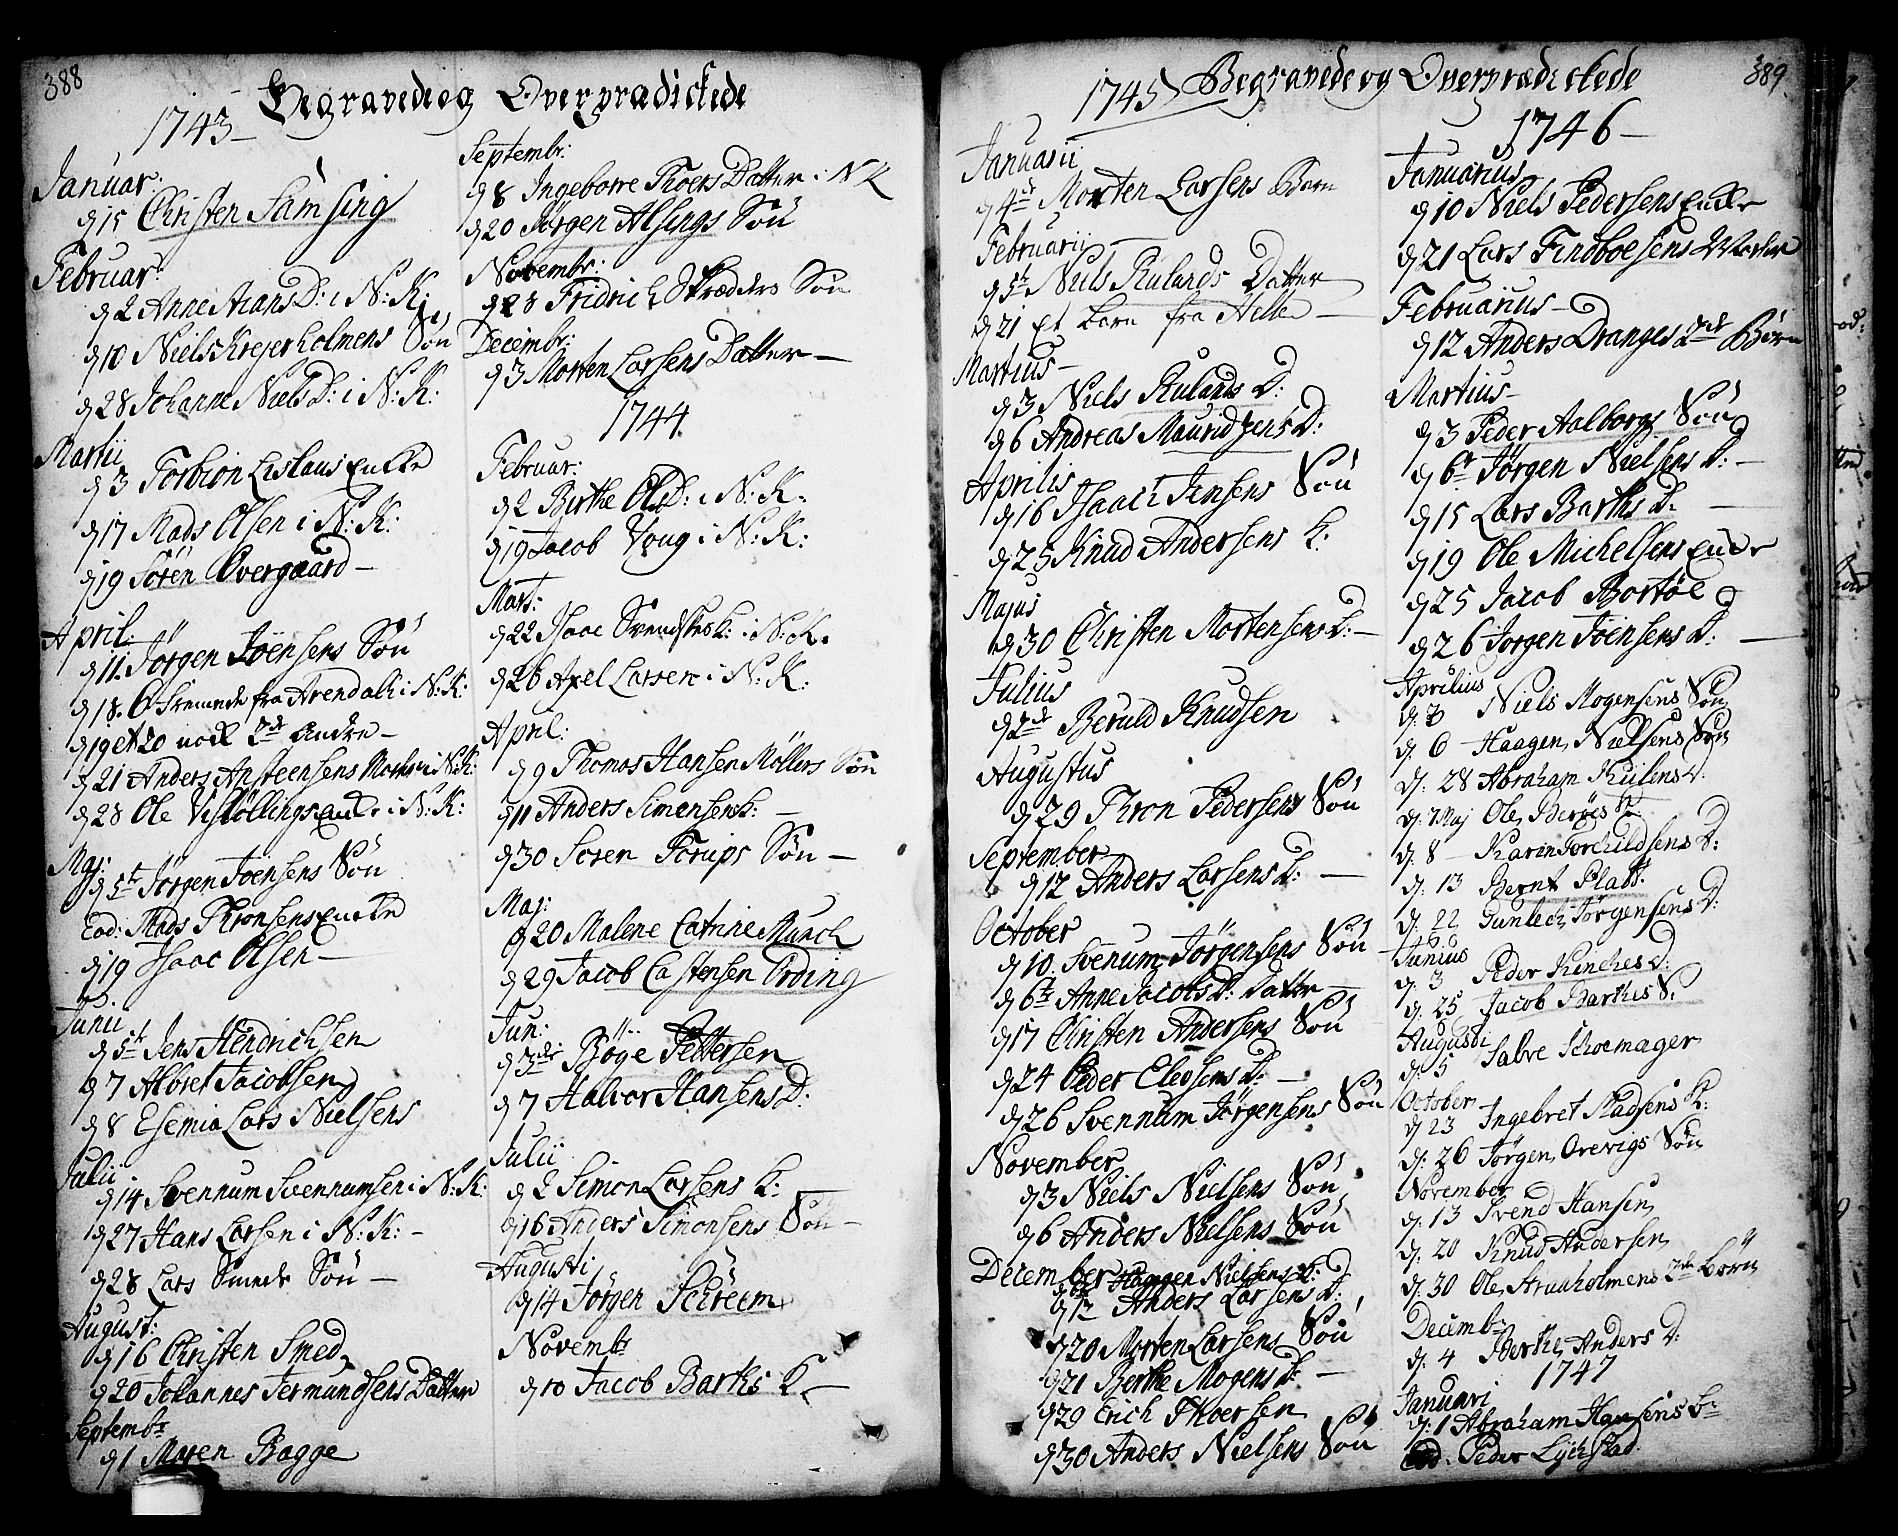 388
Begravede og Overprædickede
1743
Januar:
d 15 Christen Samsing
Februar:
d 2 Anne Arans D: i N: K:
d 10 Niels Krejerholmens Søn
d 28 Johanne Niels D: i N: K:
Martii
d 3 Torbion Lislaus Encke
d 17 Mads Olsen i N: K:
d 19 Sören Overgaard
April:
d 11. Jörgen Joensens Søn
d 18. 6 Fremmede fra Arendall i N: K:
d 19 et 20 nock 2de Andre
d 21 Anders Ansteensens Moder i N: K:
d 28 Ole Vesløllings Encke i N: K:
Maj:
d 5te Jörgen Joensens Søn
Eod: Mads Thronsens Encke
d 19 Isaac Olsen
Junii
d 5te Jens Hendrichsen
d 7 Albret Jacobsen
d 8 Esemia Lars Nielsens
Julii
d 14 Svennum Svennumsen i N: K:
d 27 Hans Larsen i N: K:
d 28 Lars Smeds Søn
August:
d 16 Christen Smed
d 20 Johannes Jermundsens Datter
Septembr
d 1 Maren Bagge
Septembr:
d 8 Ingeborre Thoers Datter i N K
d 20 Jörgen Alsings Søn
Novembr:
d 28 Fridrich Skrædders Søn
Decembr:
d 3 Morten Larsens Datter
1744
Februar:
d 2 Birthe Ols D: i N: K:
d 19 Jacob Voug i N: K:
Mart:
d 22 Isaac Svendskes B: i N: K.
d 26 Axel Larsen i N: K:
April:
d 9 Thomas Hansen Möllers Søn
d 11 Anders Simensens K:
d 30 Soren Torups Søn
Maj:
d 20 Malene Catrine Munch
d 29 Jacob Castensen Ording
Jun:
d 3die Böge Pettersen
d 7 Halvor Hansens D:
Julii
d 2 Simon Larsens K:
d 16 Anders Simonsens Søn
Augusti
d 14 Jörgen Schreem
Novembr
d 10 Jacob Barths K
389
1745 Begravede og Overprædickede
Januarii
d 4de Morten Larsens Barn
Februarii
d 5te Niels Rulands Datter
d 21 Et Barn fra Helle
Martius
d 3 Niels Rulands D:
d 6 Andreas Mauridzens D:
Aprilis
d 16 Isaach Jensens Søn
d 25 Knud Andersens K:
Majus
d 30 Christen Mortensens D:
Julius
d 2de Beruld Knudsen
Augustus
d 29 Thron Pedersens Søn
September
d 12 Anders Larsens D:
October
d 10. Svenum Jörgensens Søn
d 6te Anne Jacobs D: Datter
d 17 Christen Andersens Søn
d 24 Peder Elevsens D:
d 26 Svennum Jörgensens Søn
November
d 3 Niels Nielsens Søn
d 6 Anders Nielsens Søn
December
Haagen Nielsens D:
d 12 Anders Larsens D:
d 20 Morten Larsens Søn
d 21 Berthe Mogens D:
d 29 Erich Thoersen
d 30 Anders Nielsens Søn
1746
Januarius
d 10 Niels Pedersens Encke
d 21 Lars Findboesens Moder
Februarius
d 12 Anders Dranges 2de Börn
Martius
d 3 Peder Aalborgs Søn
d 6te Jörgen Nielsens D:
d 15 Lars Barths D:
d 19 Ole Michelsens Encke
d 25 Jacob Bortöe
d 26 Jorgen Joensens D:
Aprilius
d: 3 Niels Mogensens Søn
d: 6 Haagen Nielsens Søn
d: 28 Abraham Kiilens D:
d: 7 Maj Ole Beröes K:
d: 8 Karin Torchildsens D:
d: 13 Bernt Platt.
d: 22 Gunlech Jörgensens D:
Junius
d: 3 Peder Kinckes D:
d: 25 Jacob Barthes S.
Augusti
d: 5 Salve Schoemager
October
d 23 Ingebret Madsens K:
d: 26 Jörgen Orevigs Søn
November
d: 13 Svend Hansen
d: 20 Knud Andersen
d: 30 Ole Struaholmens 2de Börn
Decembr
d: 4 Berthe Anders D:
1747
Januari
d: 1 Abraham Hansens B:
Eod: Peder Lychstad